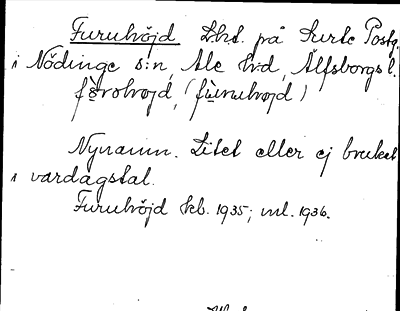 Furuhöjd Lht. på Surte Postg.
i Nödinge s:n, Ale h:d, Älfsborgs l.
fʉ̀rɷhøjd, (fùruhøjd)
Nynamn. Litet eller ej brukat
i vardagstal.
Furuhöjd kb. 1935; ml. 1936.